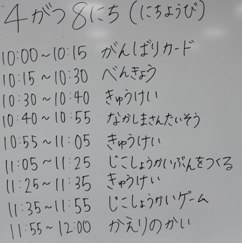 4がつ8にち(にちようび)
10:00~10:15 がんばりカード
10:15~10:30 べんきょう
10:30~10:40 きゅうけい
10:40~10:55 なかしまさんたいそう
10:55~11:05 きゅうけい
11:05~11:25 じこしょうかいぶんをつくる
11:25~11:35 きゅうけい
11:35~11:55 じこしょうかいゲーム
11:55~12:00 かえりのかい